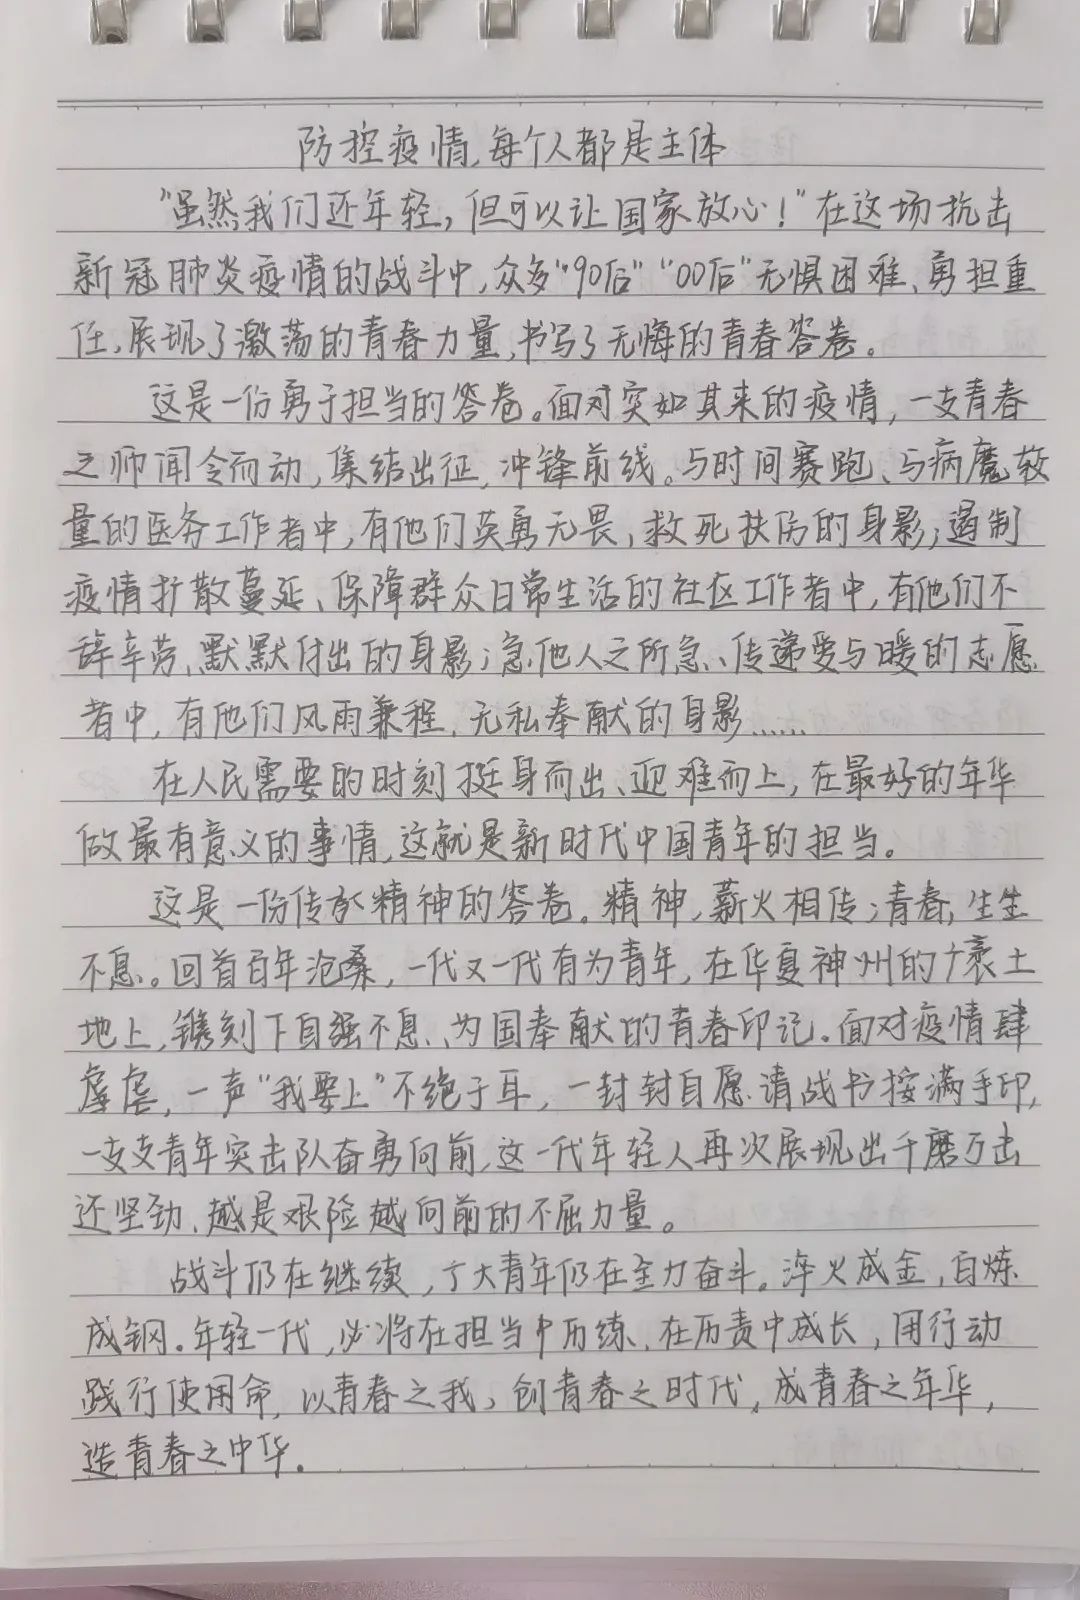 防控疫情,每个人都是主体
“虽然我们还年轻,但可以让国家放心!”在这场抗击
新冠肺炎疫情的战斗中,众多“90后”“00后”无惧困难、勇担重
任,展现了激荡的青春力量,书写了无悔的青春答卷。
这是一份勇于担当的答卷。面对突如其来的疫情,一支青春
之师闻令而动,集结出征,冲锋前线。与时间赛跑、与病魔较
量的医务工作者中,有他们英勇无畏,救死扶伤的身影;遏制
疫情扩散蔓延、保障群众日常生活的社区工作者中,有他们不
辞辛劳、默默付出的身影;急他人之所急、传递爱与暖的志愿
者中,有他们风雨兼程、无私奉献的身影......
在人民需要的时刻挺身而出、迎难而上,在最好的年华
做最有意义的事情,这就是新时代中国青年的担当。
这是一份传承精神的答卷。精神,薪火相传;青春,生生
不息。回首百年沧桑,一代又一代有为青年,在华夏神州的广袤土
地上,镌刻下自强不息、为国奉献的青春印记。面对疫情肆
虐,一声“我要上”不绝于耳,一封封自愿请战书按满手印,
一支支青年突击队奋勇向前,这一代年轻人再次展现出千磨万击
还坚劲、越是艰险越向前的不屈力量。
战斗仍在继续,广大青年仍在全力奋斗。淬火成金,百炼
成钢。年轻一代,必将在担当中历练、在历责中成长,用行动
践行使用命,以青春之我,创青春之时代,成青春之年华,
造青春之中华.